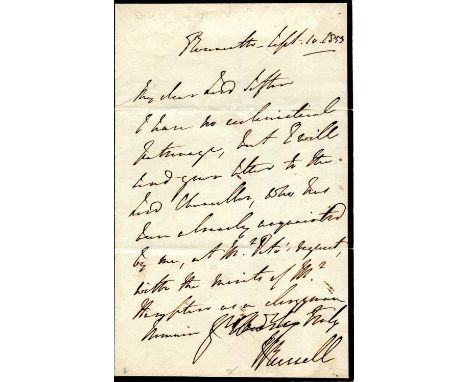 Sept. 10. 1853
My dear Lord Sefton
I have no ecclesiastical
Patronage, but I will
send your letter to the
Lord Chancellor, who has
been already acquainted
by me, at Mr. request,
with the merits of Mr.
as a clergyman
I remain yours truly
J Russell